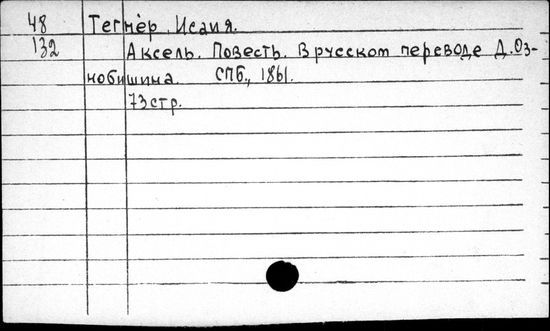 48 Тегнѐр. Исаия.
132 Аксель. Повесть. В русском переводе Д. Оз-
нобишина. СПб., 1861.
73 стр.